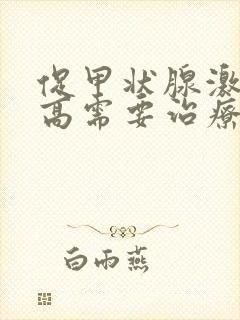 促甲状腺激
高需要治疗
白雨燕